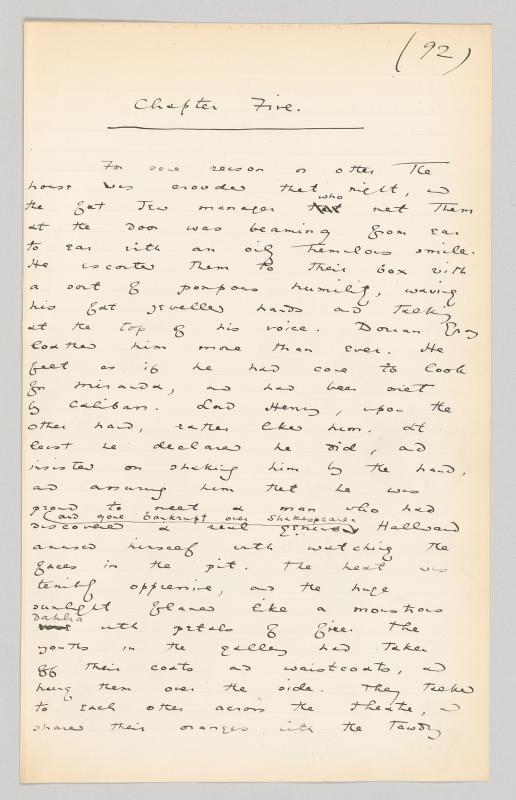 (92)
Chapter Five.
For some reason or other the
house was crowded that night, and
the fat Jew manager who met them
at the door was beaming from ear
to ear with an oily tremulous smile.
He escorted them to their box with
a sort of pompous humility, waving
his fat jewelled hands and talking
at the top of his voice. Dorian Gray
loathed him more than ever. He
felt as if he had come to look
for Miranda, and had been met
by Caliban. Lord Henry, upon the
other hand, rather liked him. At
least he declared he did, and
insisted on shaking him by the hand,
and assuring him that he was
proud to meet a man who had
discovered a real genius
and gone bankrupt over Shakespeare.
Hallward
amused himself with watching the
faces in the pit. The heat was
terribly oppressive, and the huge
sunlight flamed like a monstrous
dahlia
with petals of fire. The
youths in the gallery had taken
off their coats and waistcoats, and
hung them over the side. They talked
to each other across the theatre, and
shared their oranges with the tawdry